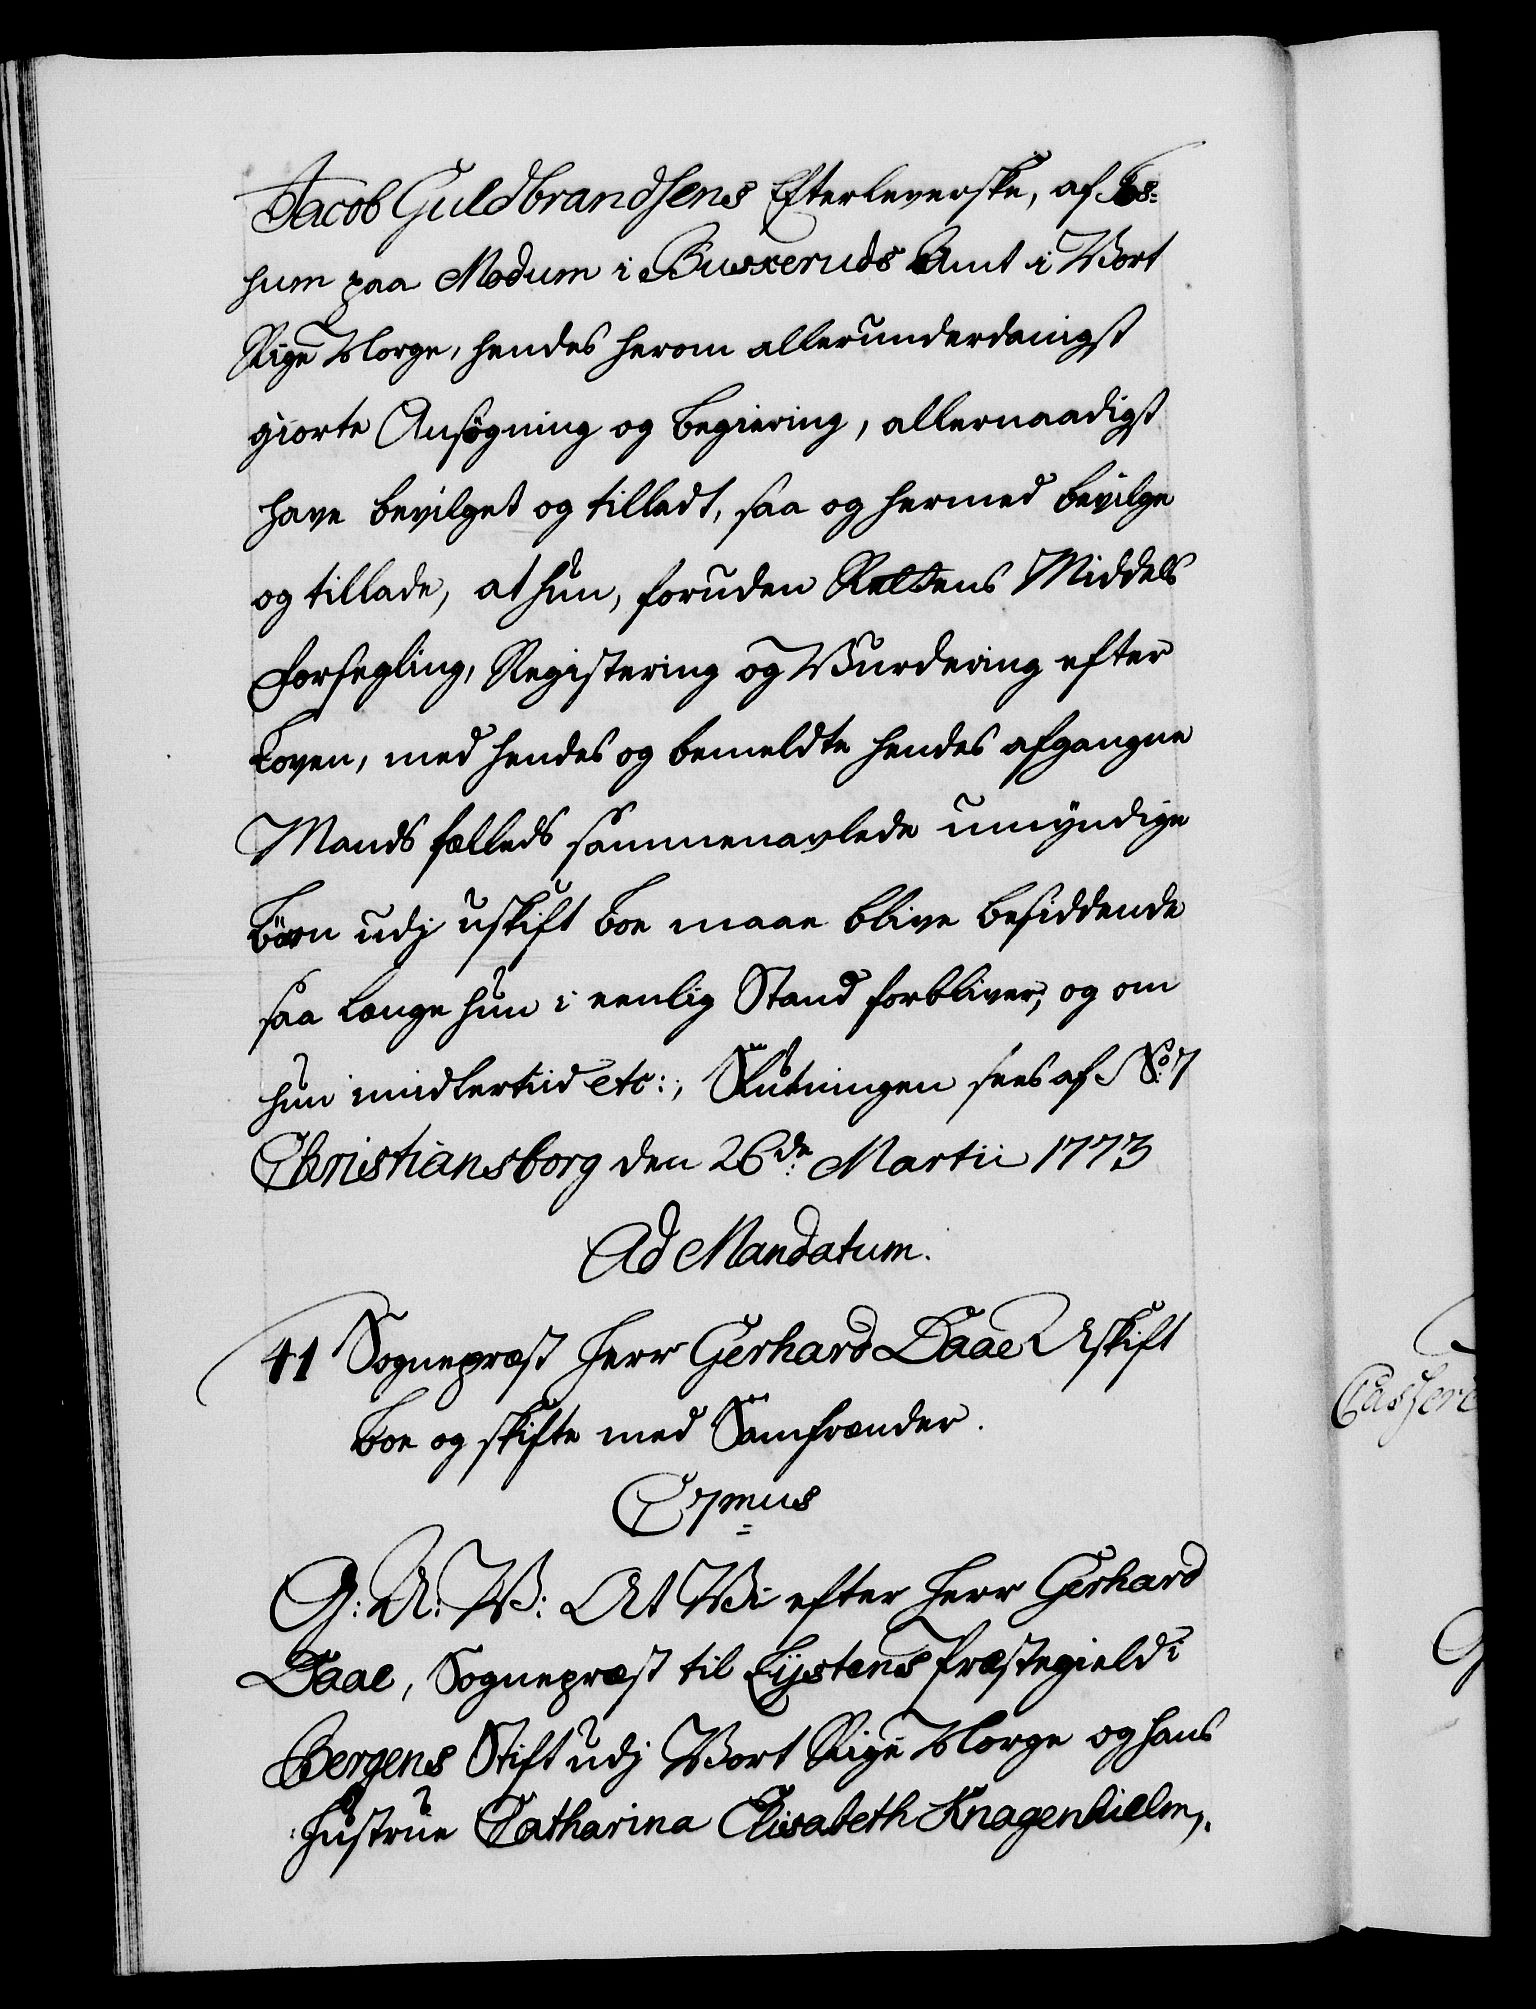 Jacob Guldbrandsens Efterleverske, af
hum paa Modum i Buxeruds Amt i Vort
Rige Norge, hendes herom allerunderdanigst
giorte Ansøgning og begiering, allernaadigst
have bevilget og tilladt, saa og hermed bevilge
og tillade, at hun, foruden Rettens Middels
Forsegling, Registering og Vurdering efter
Loven, med hendes og bemeldte hendes afgangne
Mands fælleds sammenavlede umÿndige
Børn udj uskift Boe maae blive besiddende
saa længe hun i eenlig Stand forbliver, og om
hun imidlertiid etc:, Slutningen sees af No: 7
Christiansborg den 26de: Martii 1773
Ad Mandatum.
41 Sognepræst Herr Gerhard Daae Uskift
Boe og skifte med Samfrænder.
C 7mus
G: A: V: At Vi efter Herr Gerhard
Daae, Sognepræst til Lÿsters Præstegield i
Bergens Stift udj Vort Rige Norge og hans
Hustrue Catharina Elisabeth Knagenhielm,
Casser